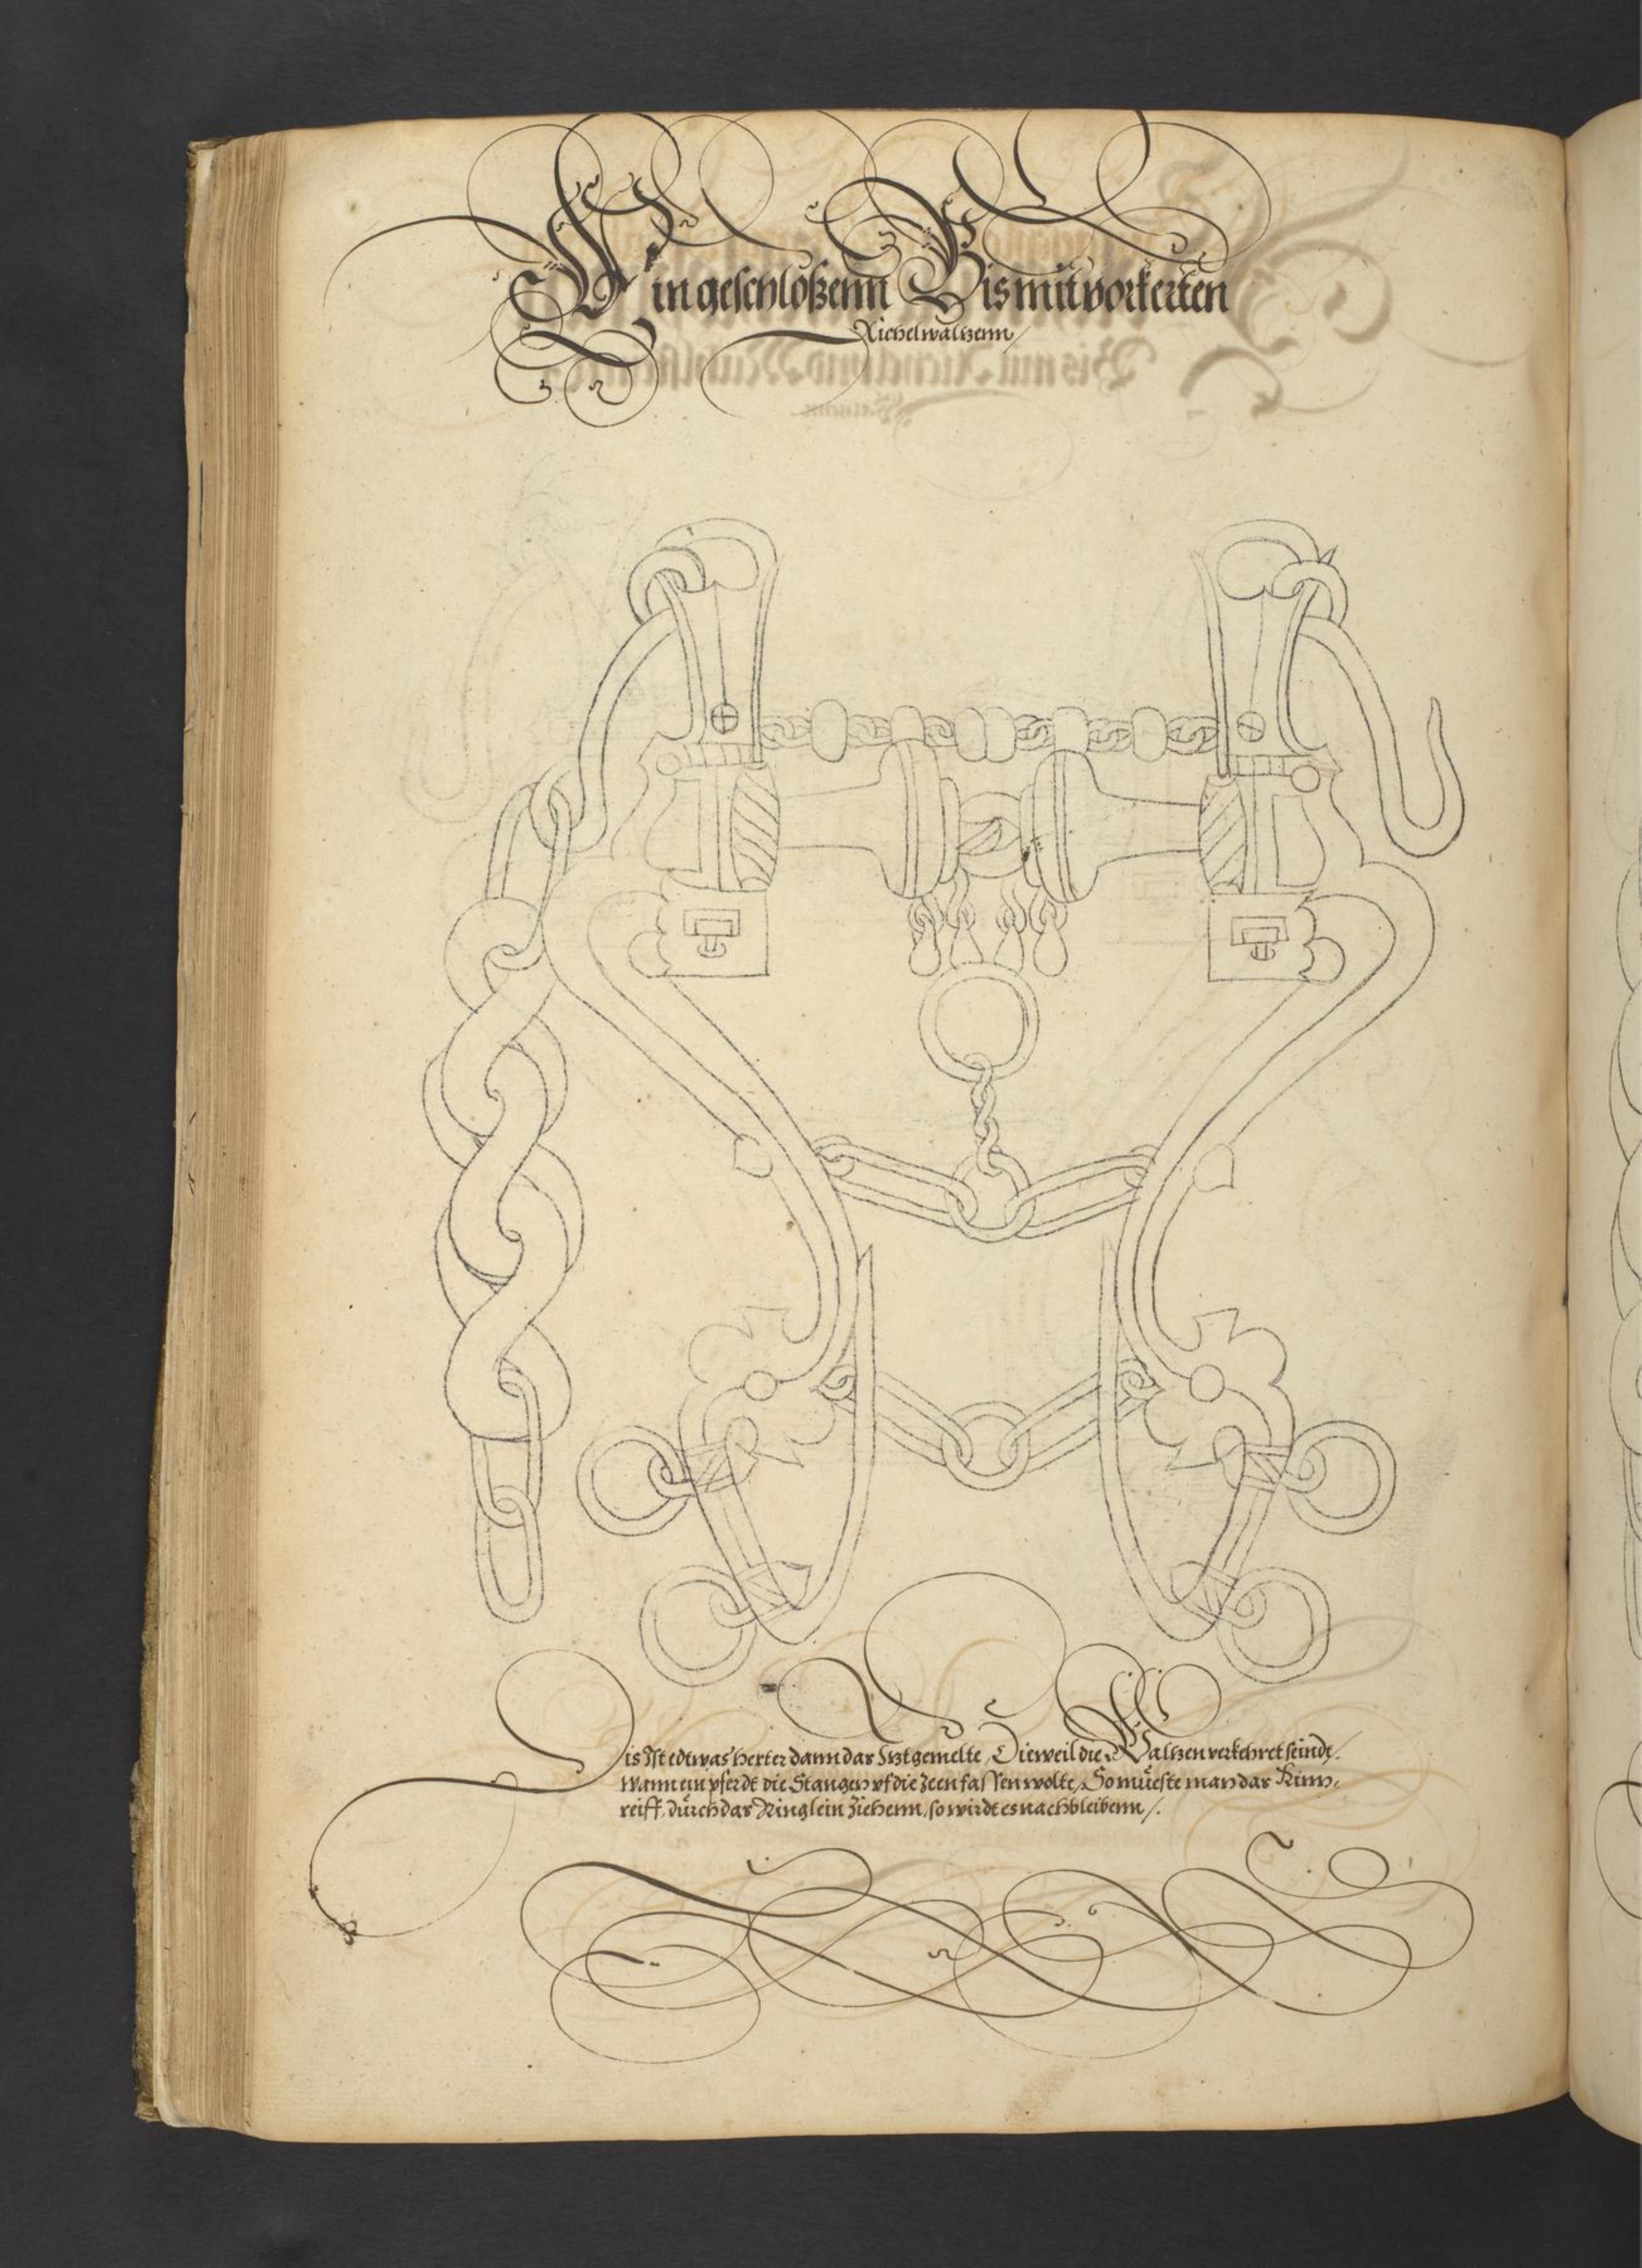 Ein geschloßenn Bis mit vorkerten
Richelwaltzenn /
Dis Ist edtwas herter dann das Itzt gemelte / Dieweil die Waltzen verkehret seindt /.
Wann ein pferdt die Stangen uf die Zeen fassen wolte / So müeste man das Kinn,
reiff, durch das Ringlein Ziehenn, so wirdt es nachbleibenn /.